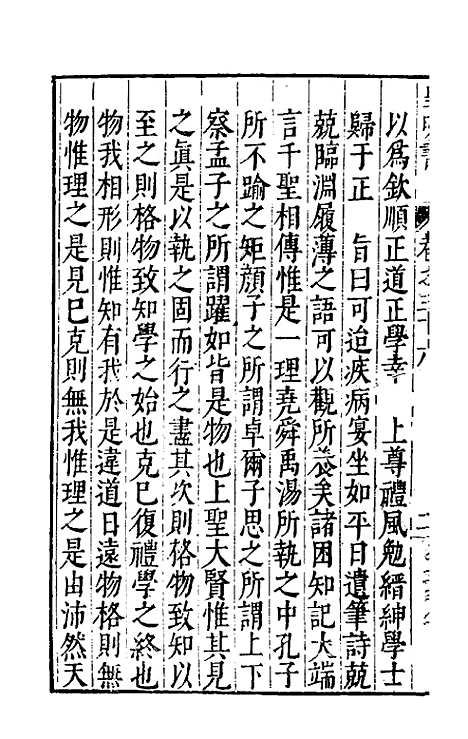 以為欽順正道正學幸　上尊禮風勉縉紳學士
歸于正　旨曰可迨疾病宴坐如平日遺筆詩兢
兢臨淵履薄之語可以觀所養矣諸困知記大端
言千聖相傳惟是一理堯舜禹湯所執之中孔子
所不踰之矩顏子之所謂卓爾子思之所謂上下
察孟子之所謂躍如皆是物也上聖大賢惟其見
之真是以執之固而行之盡其次則格物致知以
至之則格物致知學之始也克己復禮學之終也
物我相形則惟知有我於是違道日遠物格則無
物惟理之是見已克則無我惟理之是由沛然天